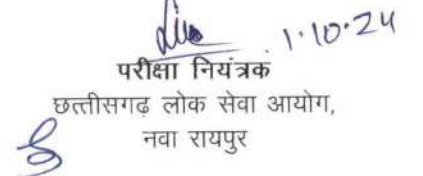 1.10.24
परीक्षा नियंत्रक
छत्तीसगढ़ लोक सेवा आयोग,
नवा रायपुर